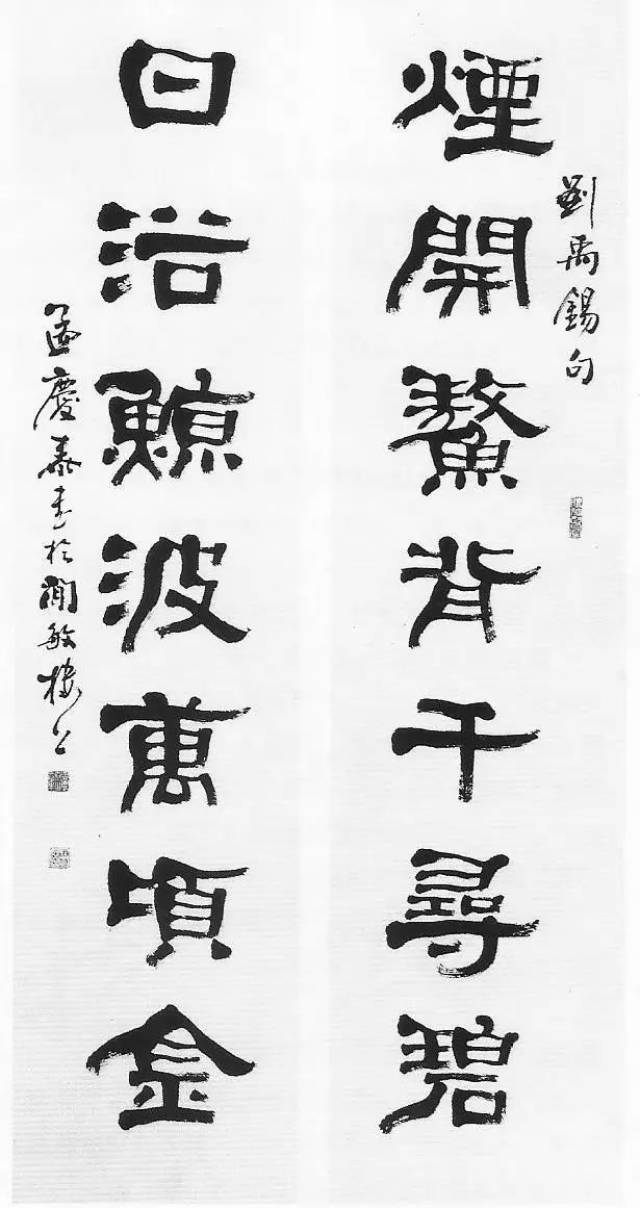 劉禹錫句
煙開鰲背千尋碧
日浴鯨波萬頃金
孟慶泰書於敏樓上